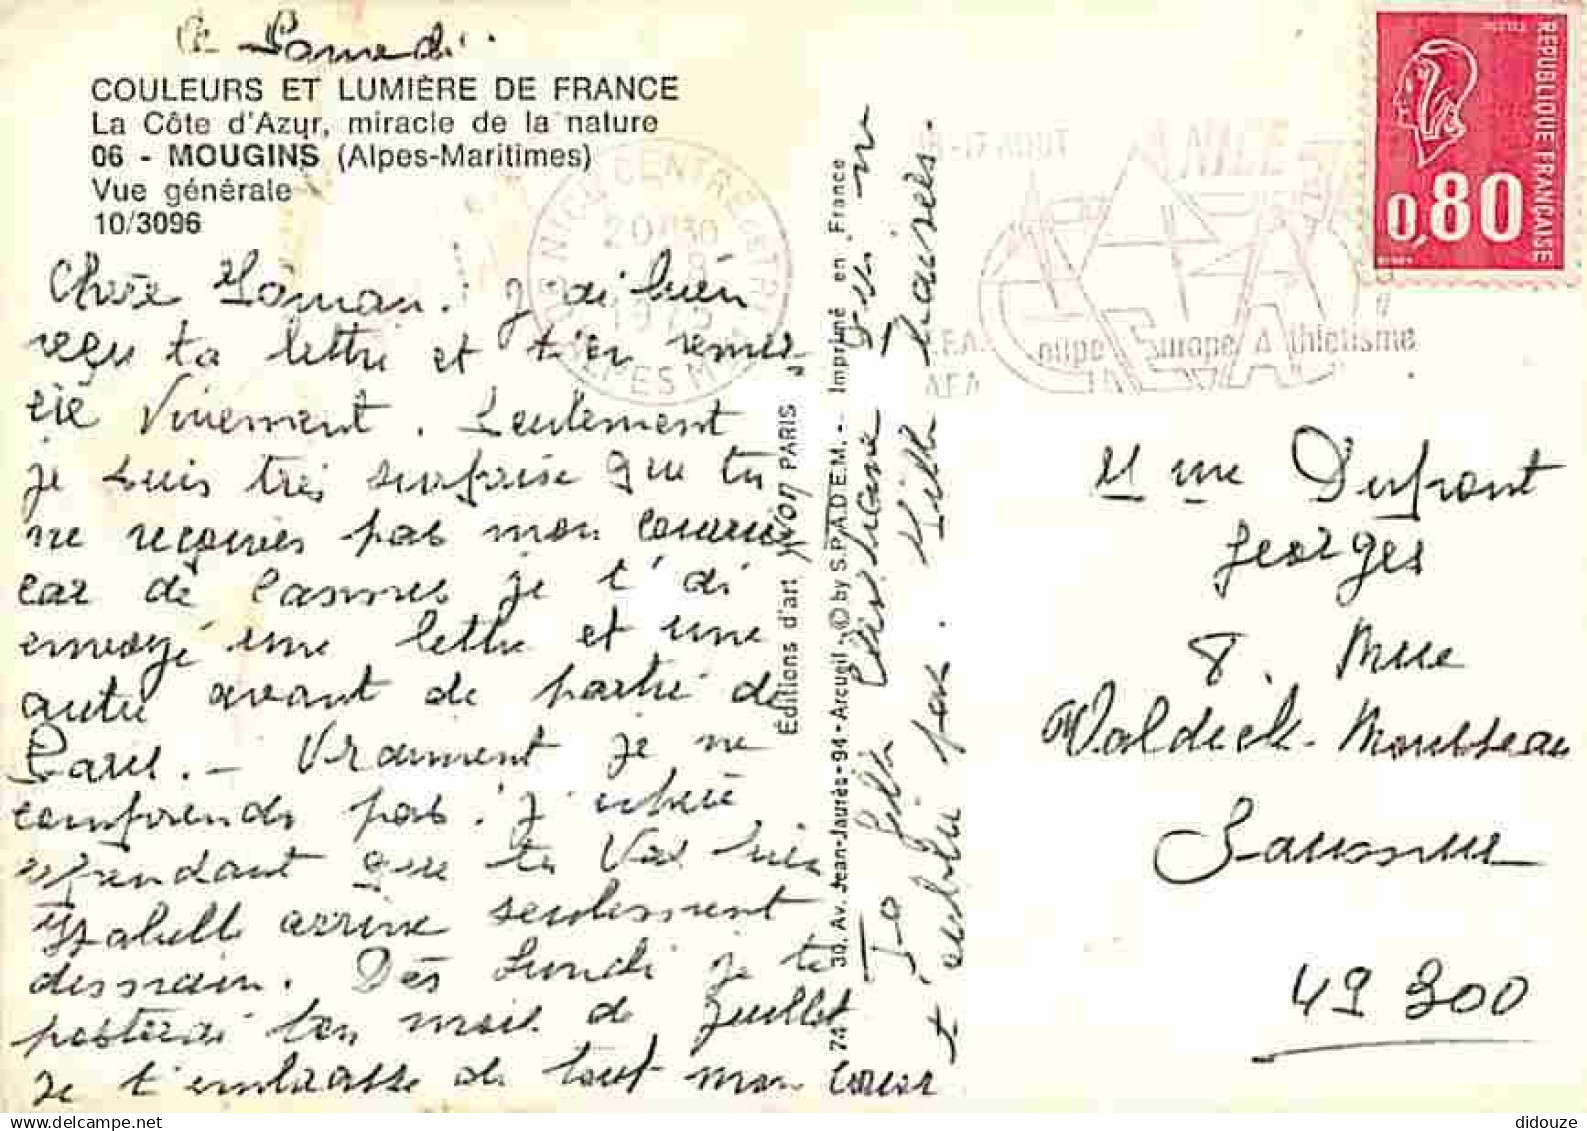 Ce Samedi.
COULEURS ET LUMIÈRE DE FRANCE
La Côte d'Azur, miracle de la nature
06 - MOUGINS (Alpes-Maritimes)
Vue générale
10/3096
Chère Maman. J'ai bien
reçu ta lettre et t'en remer
cie vivement. Seulement
je suis très surprise que tu
ne reçoives pas mon courrier
car de Cannes je t'ai
envoyé une lettre et une
autre avant de partir de
Paris. - Vraiment je ne
comprends pas.
cependant que tu
Isabelle arrive seulement
demain. Dès Lundi je te
posterai ton mois de Juillet
je t'embrasse de tout mon coeur
Ta fille
t'oublie pas. Mille baisers.
Éditions d'art YVON PARIS
74 30, Av. Jean-Jaurès - 94 - Arcueil - © by S.P.A.D.E.M. -- Imprimé en France
NICE CENTRE
20H30
ALPES MMES
A NICE
Coupe d'Europe d'Athlétisme
REPUBLIQUE FRANÇAISE
0,80
Mme Dufront
Georges
8. Rue
Waldeck-Rousseau
Saumur
49 300
didouze